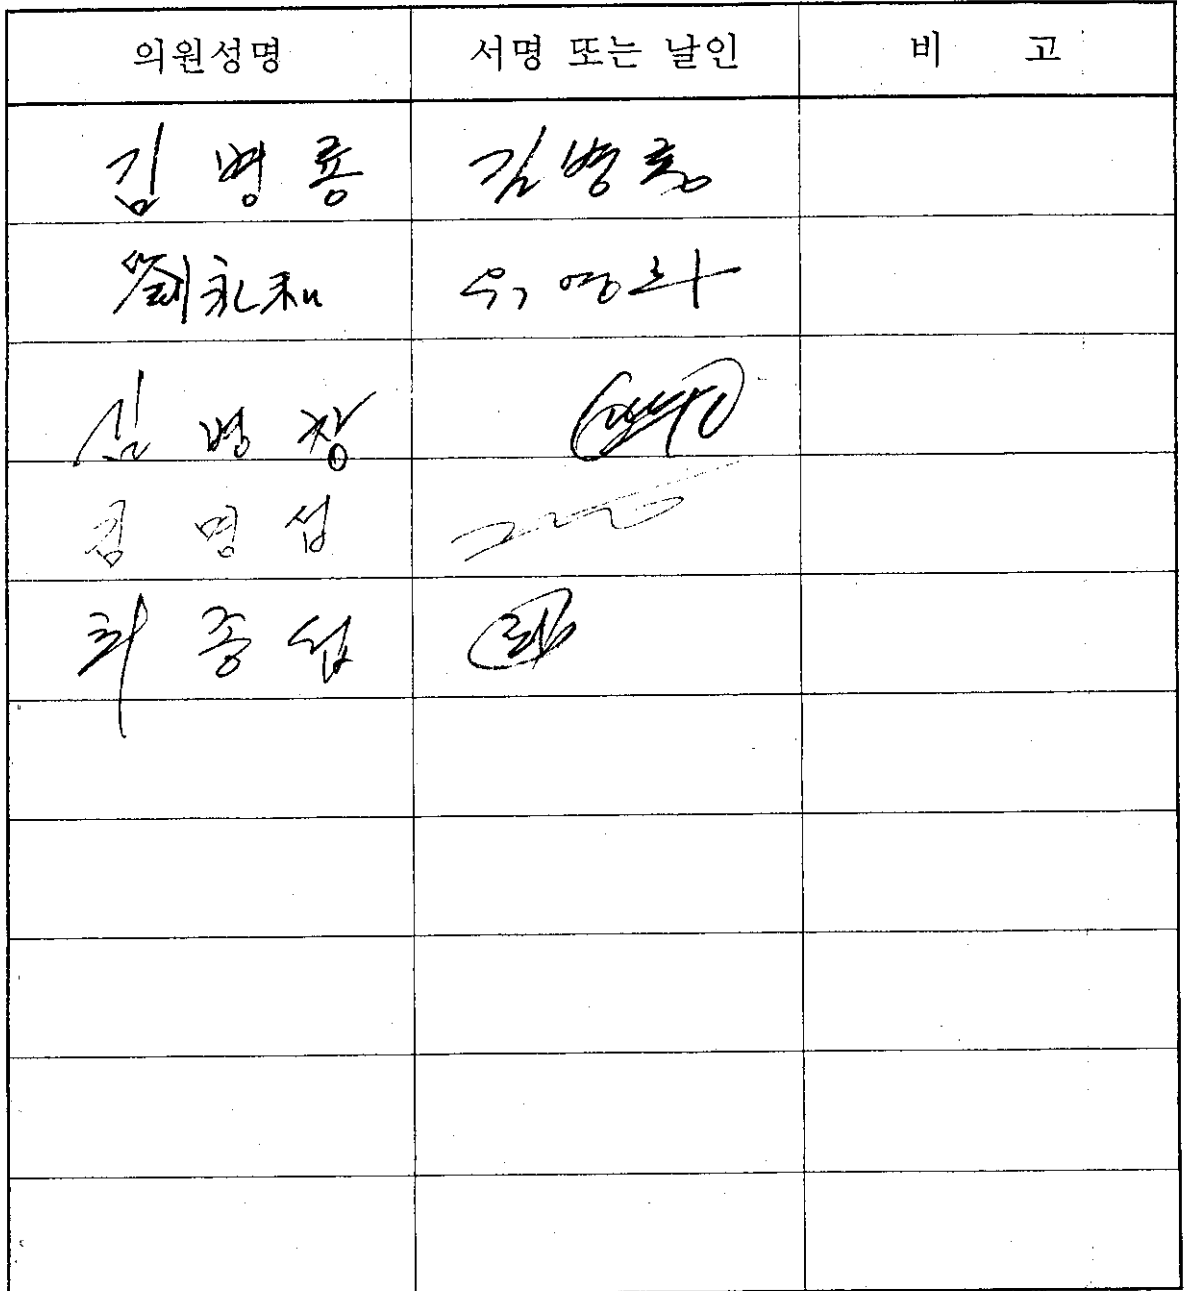 의원성명 서명 또는 날인 비 고
김병룡 김병룡
劉永和 유영화
심병창
김명섭
최종섭